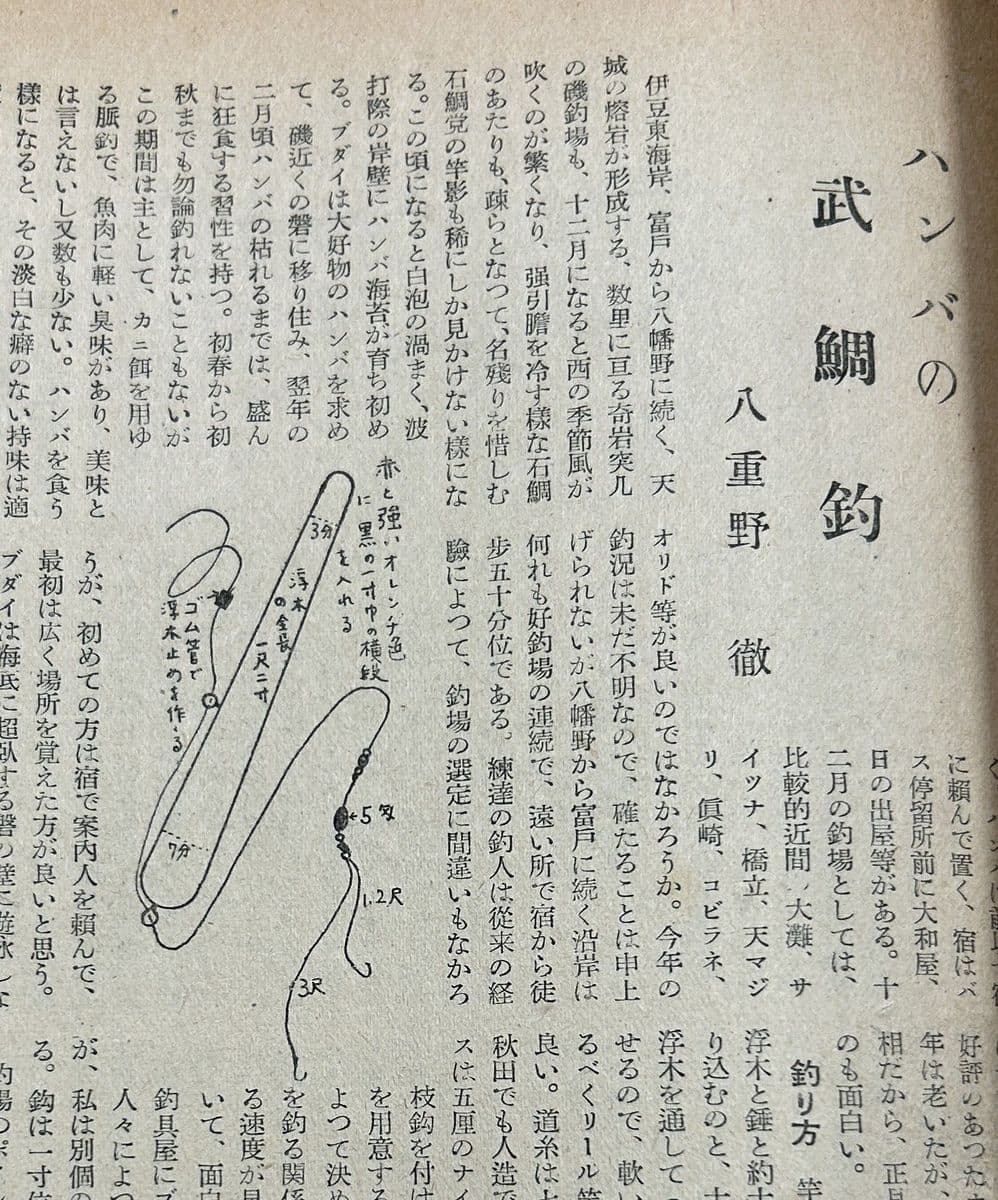 ハンバの
武鯛釣
八重野 徹
伊豆東海岸、富戸から八幡野に続く、天
城の熔岩が形成する、数里に亘る奇岩突兀
の磯釣場も、十二月になると西の季節風が
吹くのが繁くなり、强引膽を冷す様な石鯛
のあたりも、疎らとなつて、名残りを惜しむ
石鯛党の竿影も稀にしか見かけない様にな
る。この頃になると白泡の渦まく、波
打際の岸壁にハンバ海苔が育ち初め
る。ブダイは大好物のハンバを求め
て、磯近くの磐に移り住み、翌年の
二月頃ハンバの枯れるまでは、盛ん
に狂食する習性を持つ。初春から初
秋までも勿論釣れないこともないが
この期間は主として、カニ餌を用ゆ
る脈釣で、魚肉に軽い臭味があり、美味と
は言えないし又数も少ない。ハンバを食う
様になると、その淡白な癖のない持味は適
に頼んで置く、宿はバ
ス停留所前に大和屋、
日の出屋等がある。十
二月の釣場としては、
比較的近間ノ大灘、サ
イツナ、橋立、天マジ
リ、眞崎、コビラネ、
オリド等が良いのではなかろうか。今年の
釣況は未だ不明なので、確たることは申上
げられないが八幡野から富戸に続く沿岸は
何れも好釣場の連続で、遠い所で宿から徒
步五十分位である。練達の釣人は従来の経
驗によつて、釣場の選定に間違いもなかろ
うが、初めての方は宿で案内人を頼んで、
最初は広く場所を覚えた方が良いと思う。
ブダイは海底に超臥する磐の壁に遊泳しな
赤と強いオレンヂ色
に黒の一寸巾の横段
を入れる
3分
浮木
の全長
一尺二寸
ゴム管で
浮木止めを作る
7分
5匁
1.2尺
3尺
好評のあつた
年は老いたが
相だから、正月
のも面白い。
釣り方 竿
浮木と錘と約十
り込むのと、十
浮木を通して
せるので、軟い
るべくリール竿
良い。道糸は十
秋田でも人造で
スは五厘のナイ
枝鈎を付け
を用意する
よつて決め
を釣る関係
る速度が早
いて、面白
釣具屋にブ
人々によつ
が、私は別個の
る。鈎は一寸位